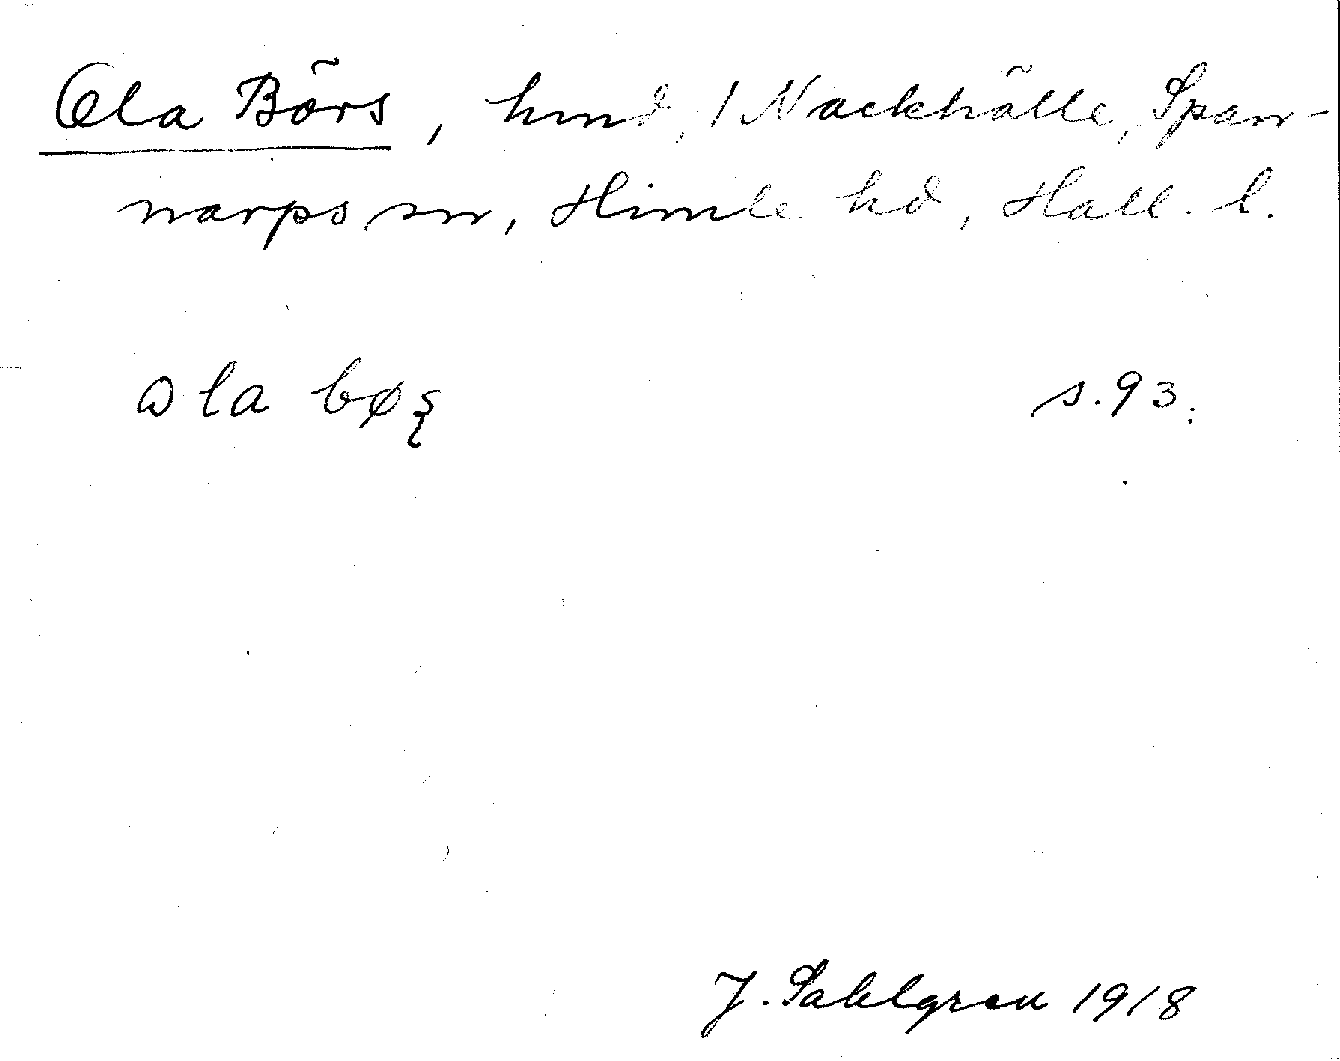 Ola Börs, hmd, 1 Nackhälle, Span-
narps sn, Himle hd, Hall. l.
ɷla bøʂ s. 93.
J. Sahlgren 1918